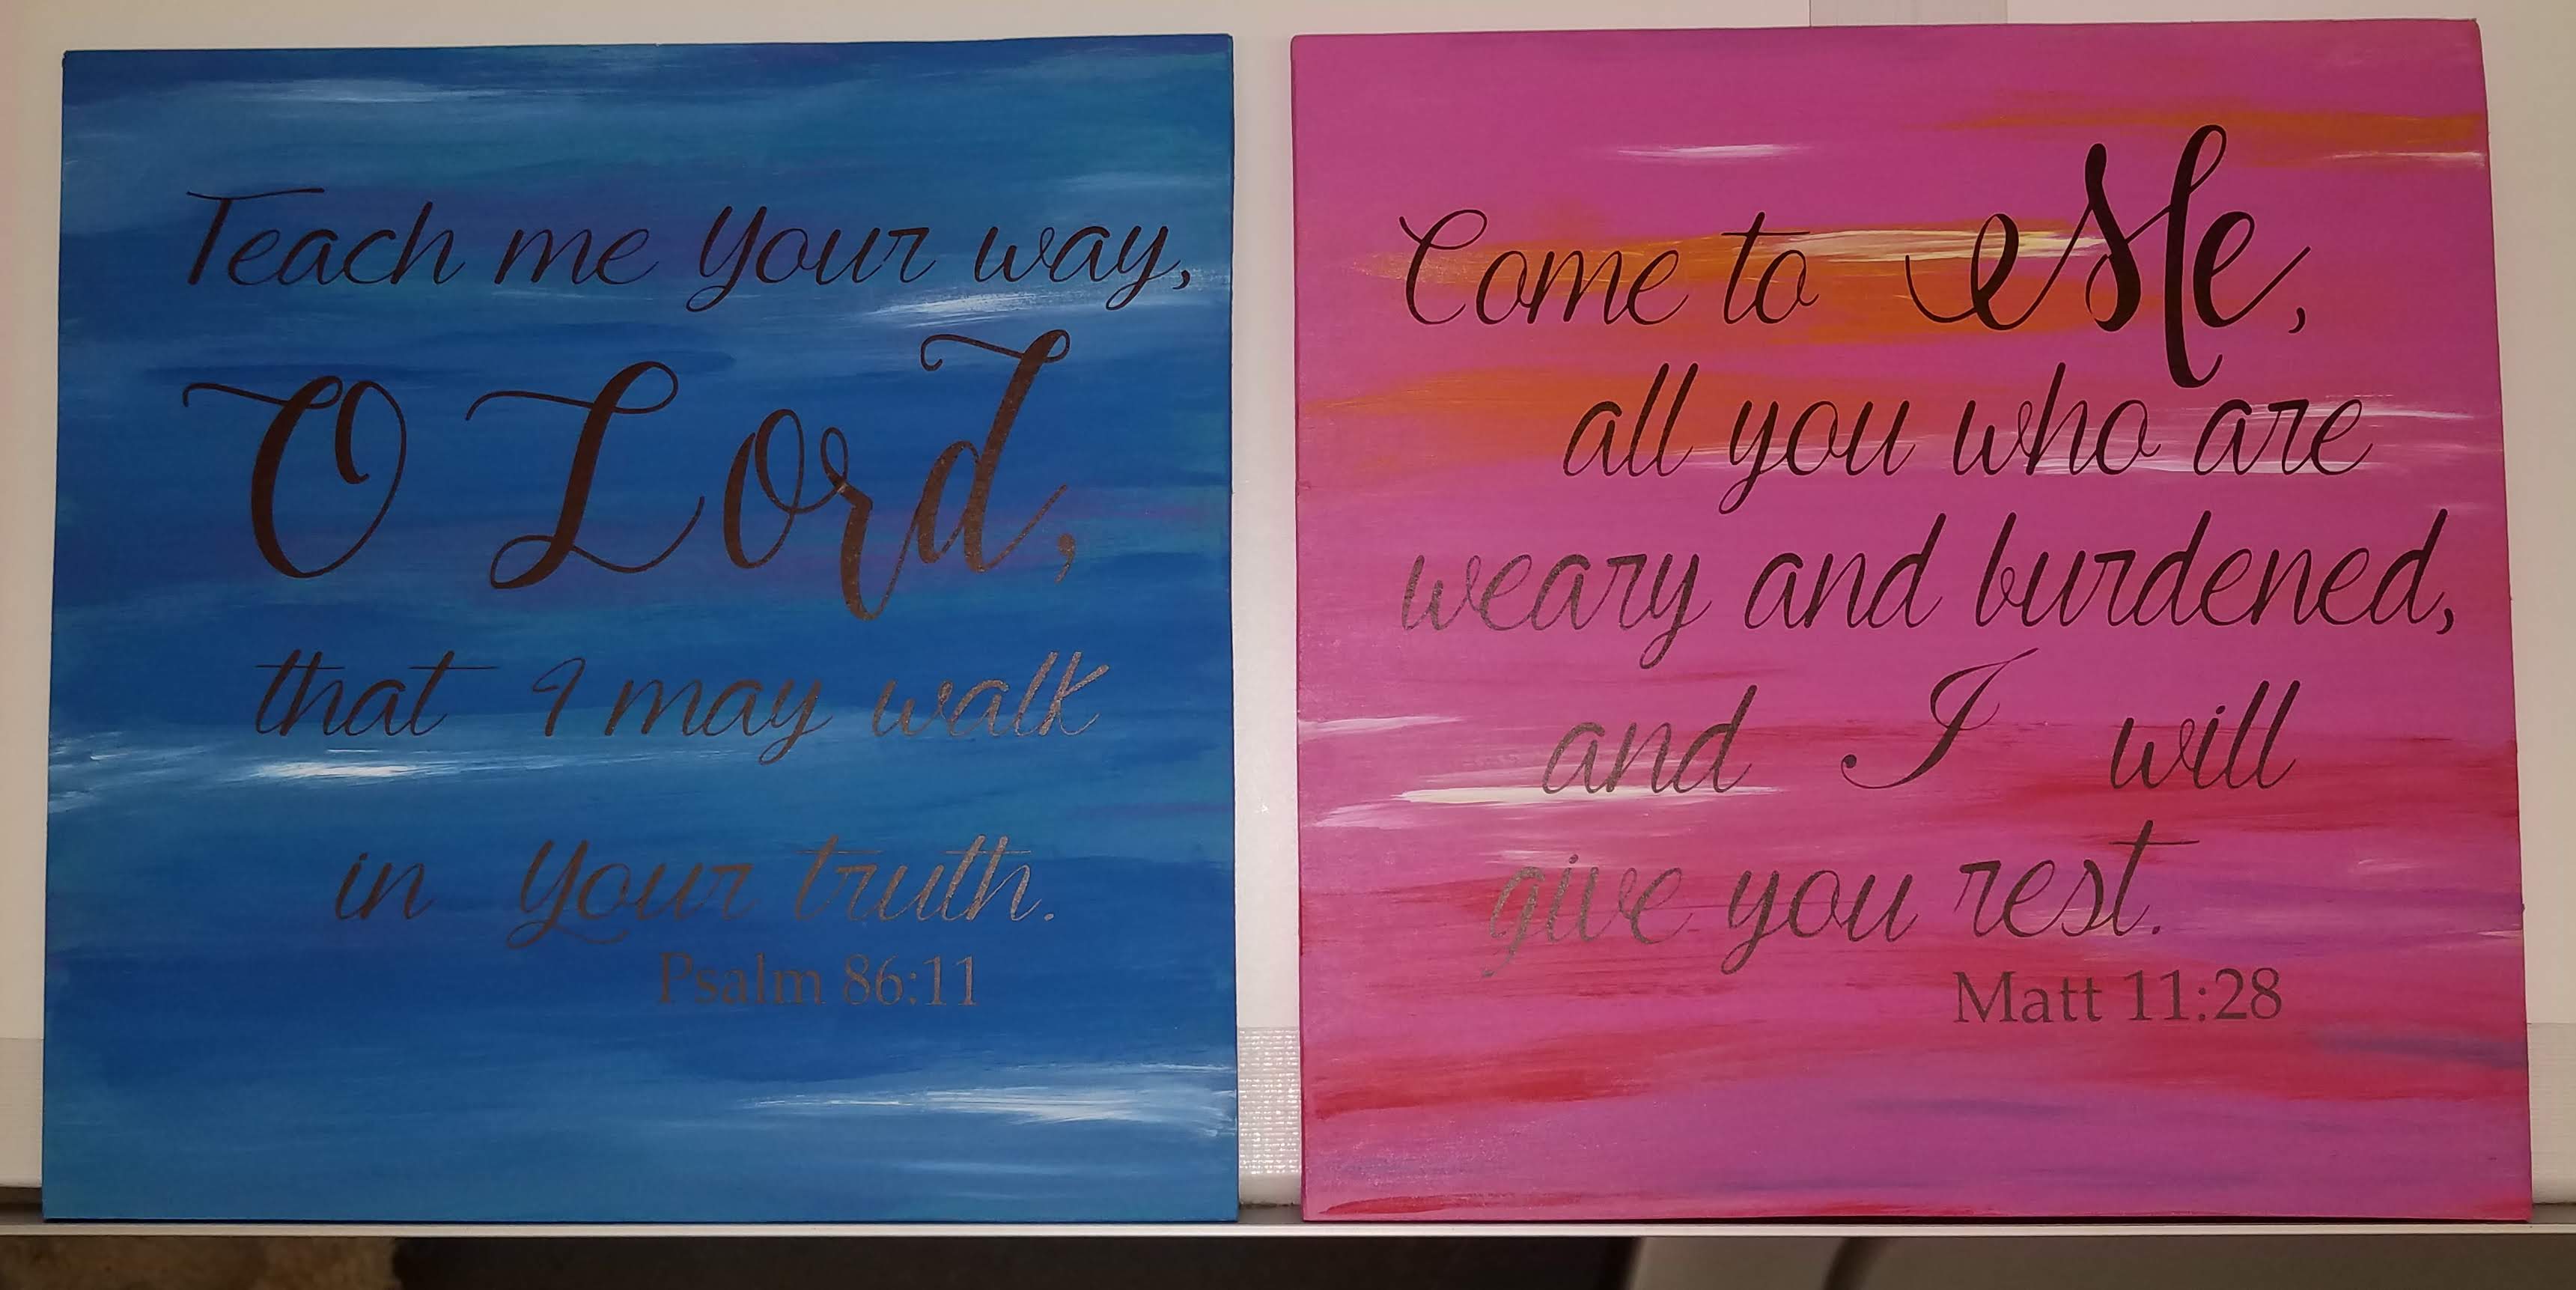 Teach me Your way,
O Lord,
that I may walk
in Your truth.
Psalm 86:11
Come to Me,
all you who are
weary and burdened,
and I will
give you rest.
Matt 11:28